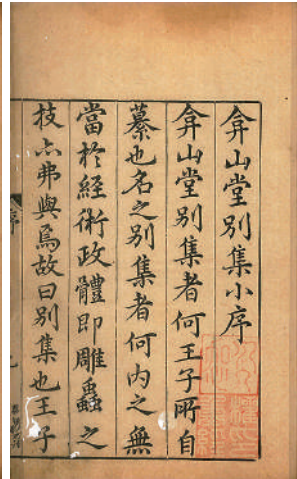 弇山堂別集小序
弇山堂別集者何王子所自
纂也名之別集者何內之無
當於経術政體即雕蟲之
技亦弗與焉故曰別集也王子
序